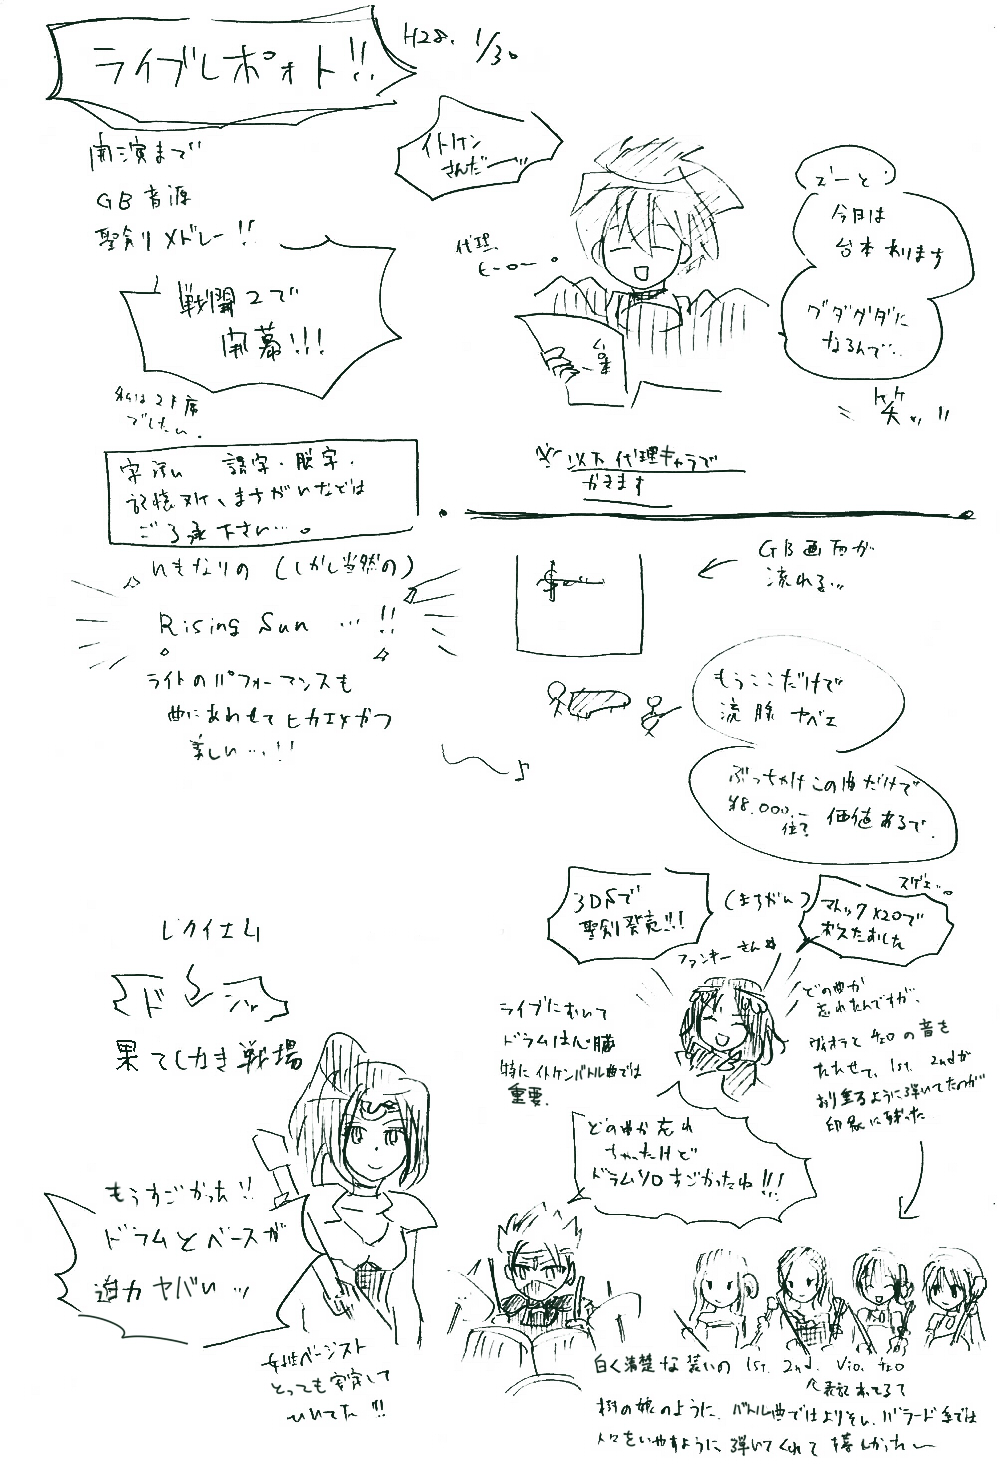 ライブレポォト!!
H28. 1/30
開演まで
GB音源
聖剣メドレー!!
戦闘2で
開幕!!!
私は2F席
でした。
イトケン
さんだーッ
代理
ヒーロー。
えーと
今日は
台本あります
グダグダに
なるんで…
笑ッ!!
※以下代理キャラで
かきます
字汚い 誤字・脱字・
記憶ヌケ、まちがいなどは
ご了承下さい…。
いきなりの(しかし当然の)
Rising Sun …!!
ライトのパフォーマンスも
曲にあわせてヒカエメかつ
美しい…!!
GB画面が
流れる…
もうここだけで
流 ヤベェ
ぶっちゃけこの曲だけで
¥8,000.- 価値あるで。
位?
レクイエム
ドシャ
果てしなき戦場
もうすごかった!!
ドラムとベースが
迫力ヤバい…
女性ベーシスト
とっても安定して
ひいてた!!
3DSで
聖剣発売!!!
(まちがい)
スゲェ…。
マトック×20で
おえたおした
ファンキーさん
ライブにおいて
ドラムは心臓
特にイトケンバトル曲では
重要。
どの曲か忘れ
ちゃったけど
ドラムソロすごかったね!!!
どの曲か
忘れたんですが、
ヴィオラとチェロの音を
たたせて、1st. 2ndが
おり重るように弾いてたのが
印象に残った
白く清楚な装いの 1st. 2nd. Vio. チェロ
樹の娘のように、バトル曲ではよりそい、バラード系では
人々をいやすように弾いてくれて